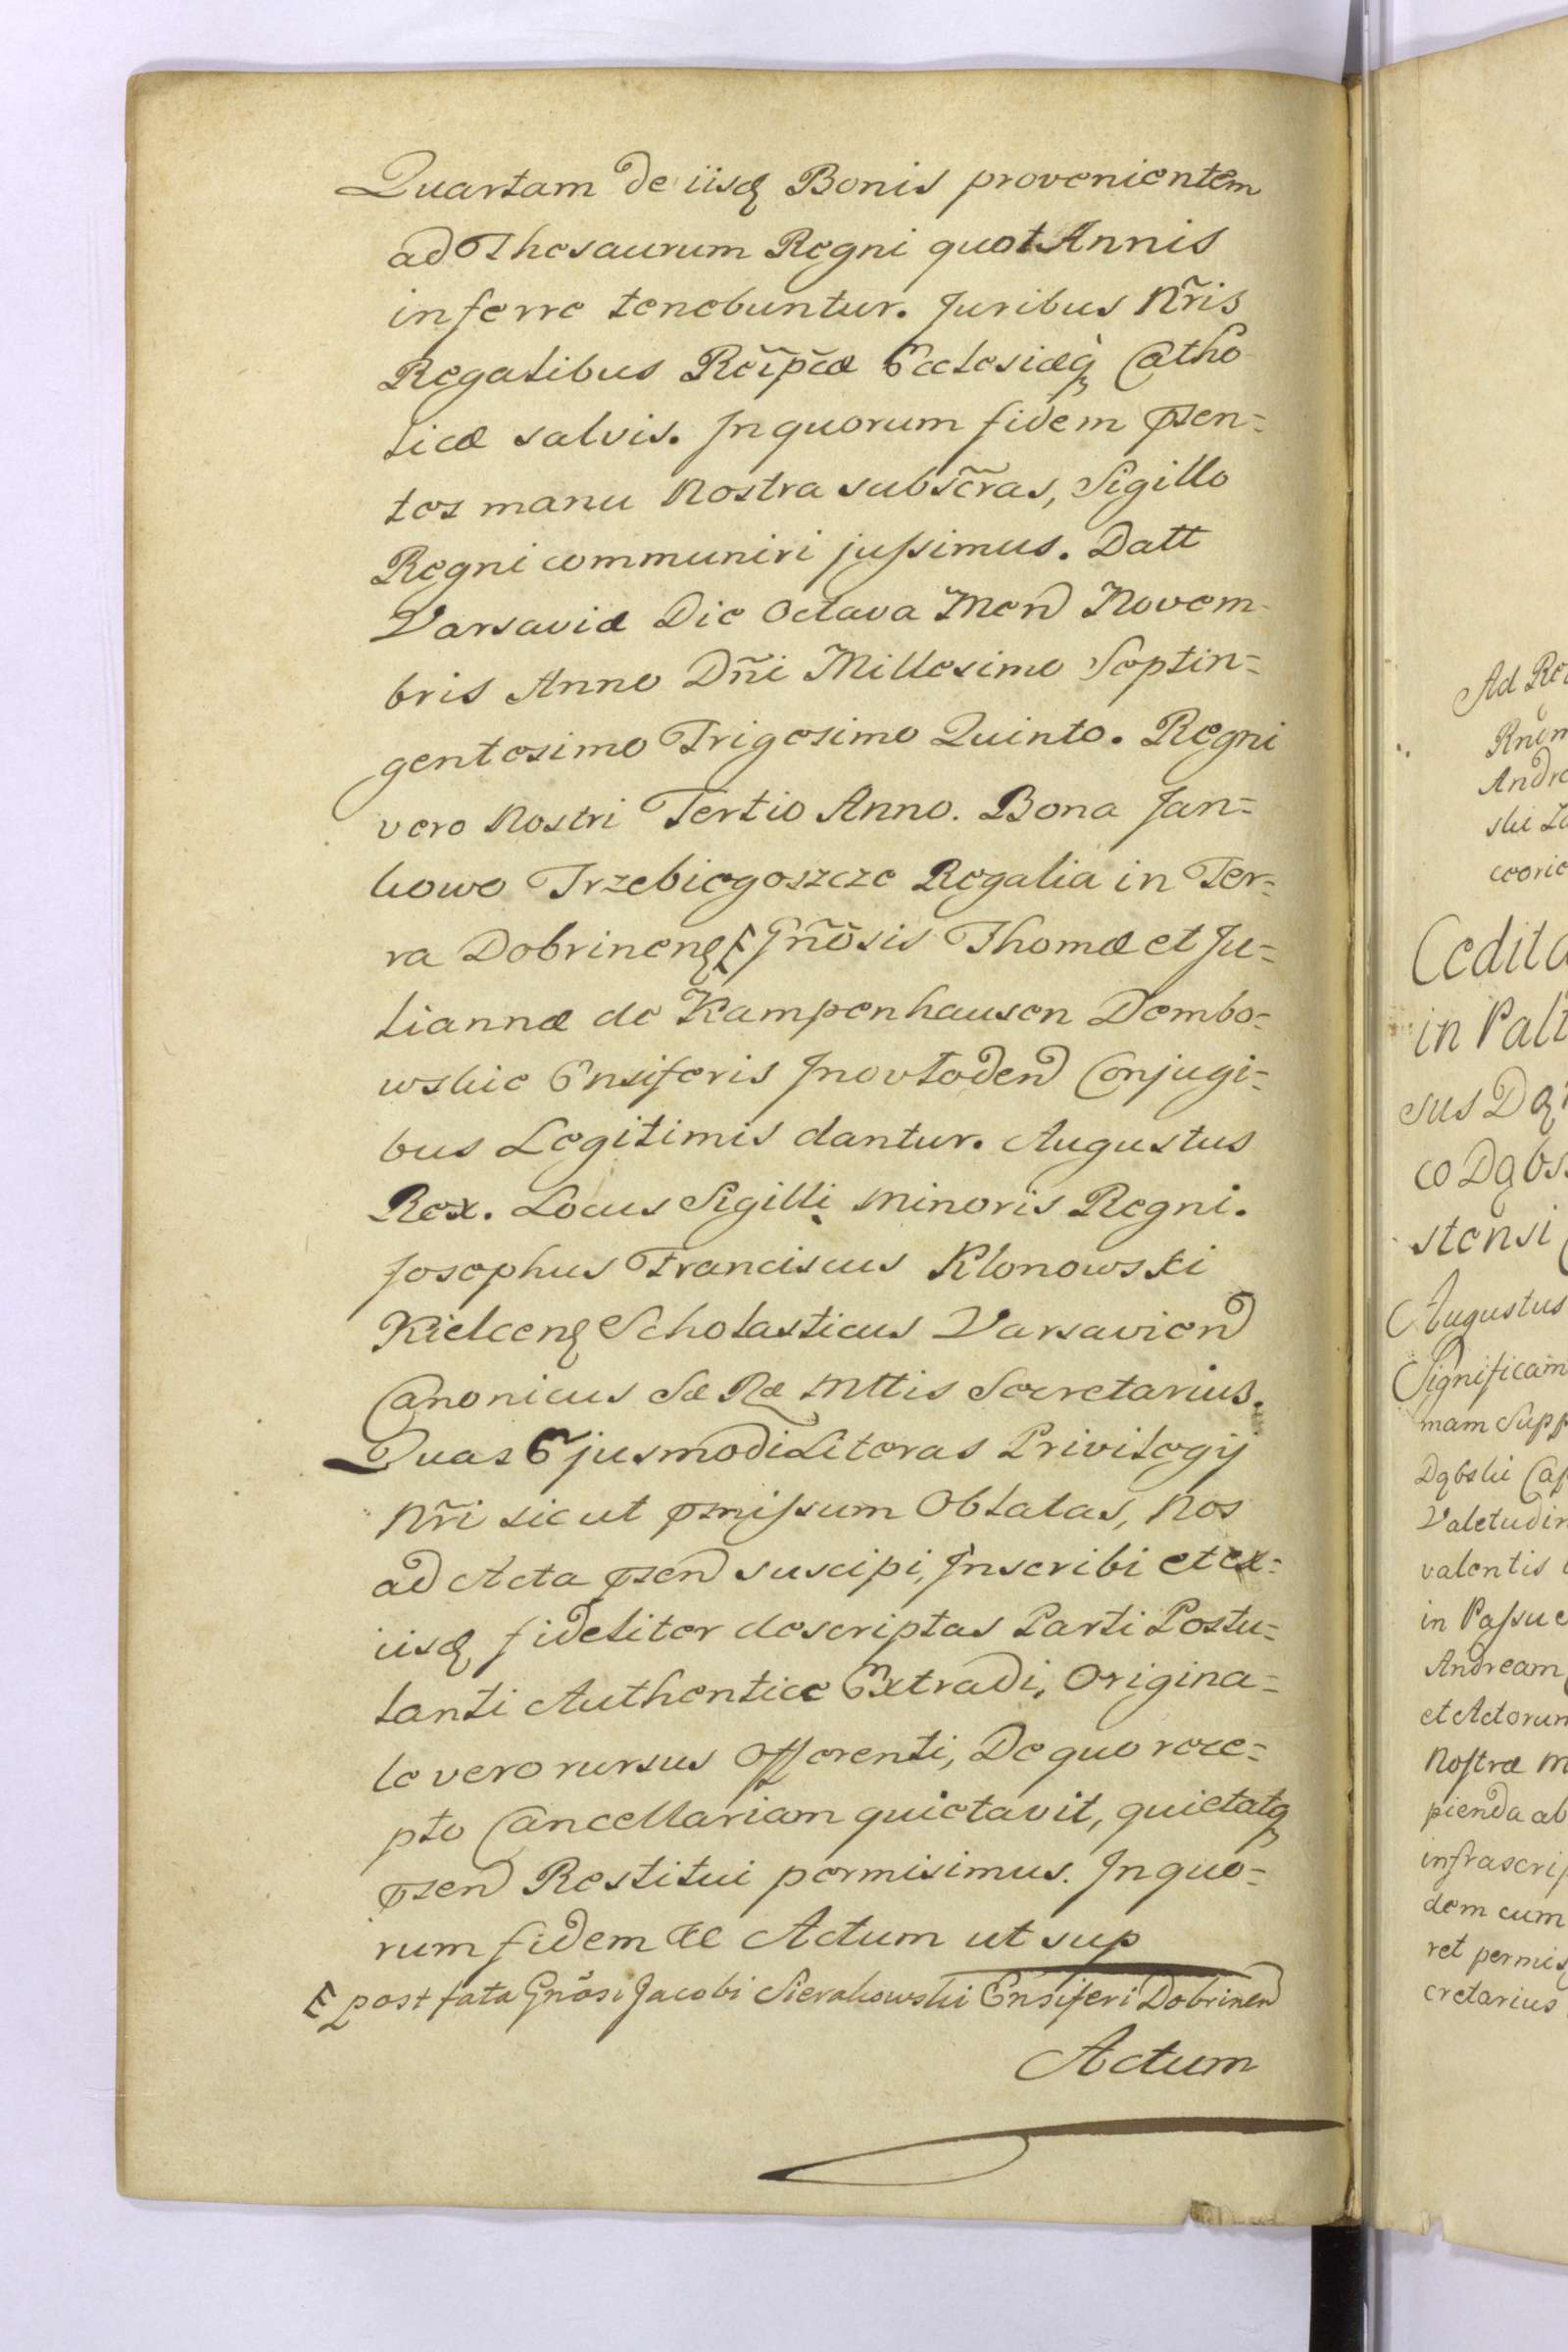 Quartam de iisq Bonis provenientem
ad Thesaurum Regni quot Annis
inferre tenebuntur. Juribus Nr̃is
Regalibus Rei͂pcæ Ecclesiæq Catho
licæ salvis. In quorum fidem pꝛsen=
tes manu Nostra subscr̃as, Sigillo
Regni communiri jussimus. Datt
Varsaviæ Die Octava Men Novem-
bris Anno Dñi Millesimo Septin=
gentesimo Trigesimo Quinto. Regni
vero Nostri Tertio Anno. Bona Jan=
kowo Trzebiegoszcze Regalia in Ter=
ra Dobrinenq Gnõsis Thomæ et Ju=
liannæ de Kampenhausen Dembo=
wskie Ensiferis Inovloden Conjugi=
bus Legitimis dantur. Augustus
Rex. Locus Sigilli Minoris Regni.
Josephus Franciscus Klonowski
Kielcenq Scholasticus Varsavien
Canonicus Sæ Ræ Mttis Secretarius.
Quas Ejusmodi Literas Privilegij
Nr̃i sicut pꝛmissum Oblatas, Nos
ad Acta pꝛsen suscipi, Inscribi et ex=
iisq fideliter descriptas Parti Postu=
lanti Authentice Extradi, Origina=
le vero rursus Offerenti, De quo rece=
pto Cancellariam quietavit, quietatq
pꝛsen Restitui permisimus. In quo=
rum fidem &c Actum ut sup
E post fata Gnõsi Jacobi Sierakowski Ensiferi Dobrinen
Actum
Ad
Andre
ski
Cedit
in Palt
sus
co Dqbs
stensi
Augustus
Significam
mam Supp
Dqbski Cap
Valetudin
valentis
in Passu
Andream
et Actorum
Nostræ M
pienda ab
infrascrip
dem cum
ret permis
cretarius